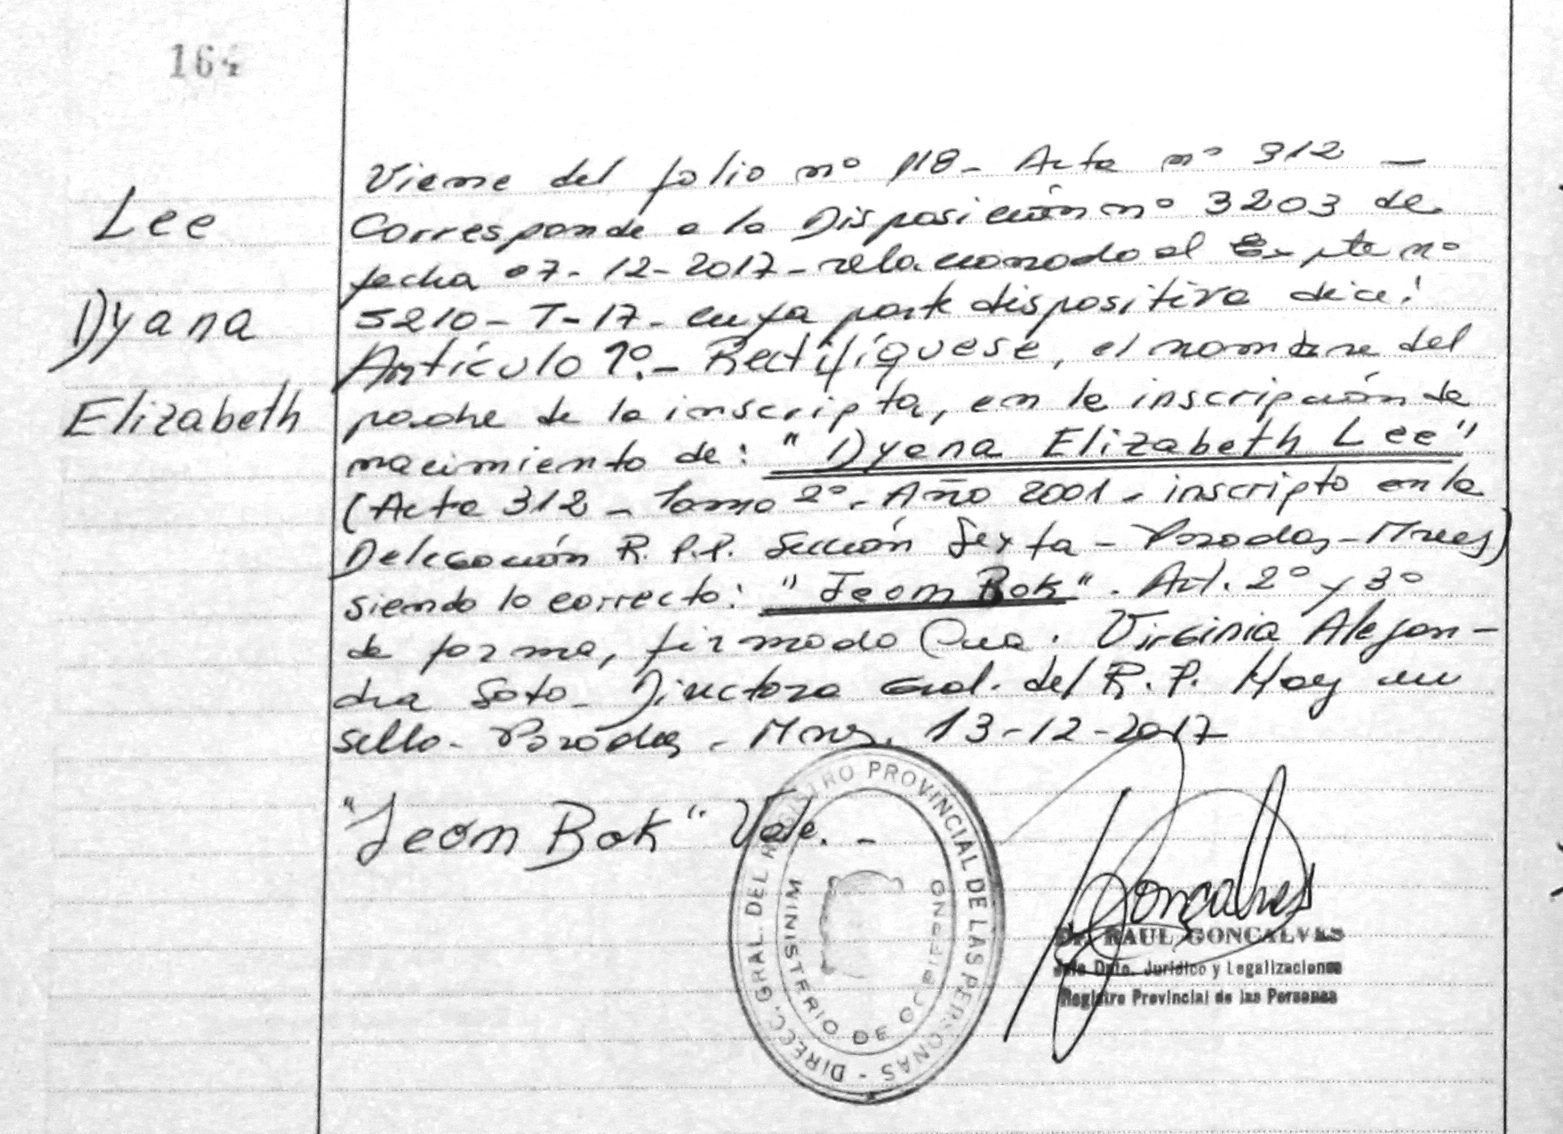 164
Lee
Dyana
Elizabeth
Viene del folio nº 118- Acta nº 312 -
Corresponde a la Disposición nº 3203 de
fecha 07-12-2017- relacionado al Expte nº
5210-T-17- cuya parte dispositiva dice:
Artículo 1º.- Rectifíquese, el nombre del
padre de la inscripta, en la inscripción de
nacimiento de: "Dyana Elizabeth Lee"
(Acta 312 - Tomo 2º- Año 2001 - inscripto en la
Delegación R.P.P. Sección Sexta - Posadas - Mnes)
siendo lo correcto: "Jeom Bok". Art. 2º y 3º
de forma, firmado Virginia Alejan-
dra Soto- Directora Gral. del R.P. Hay un
sello- Posadas - Mnes. 13-12-2017
"Jeom Bok" Vale.-
DIRECC. GRAL. DEL REGISTRO PROVINCIAL DE LAS PERSONAS -
MINISTERIO DE GOBIERNO
Goncalves
Dr. RAUL GONCALVES
Jefe Dpto. Jurídico y Legalizaciones
Registro Provincial de las Personas